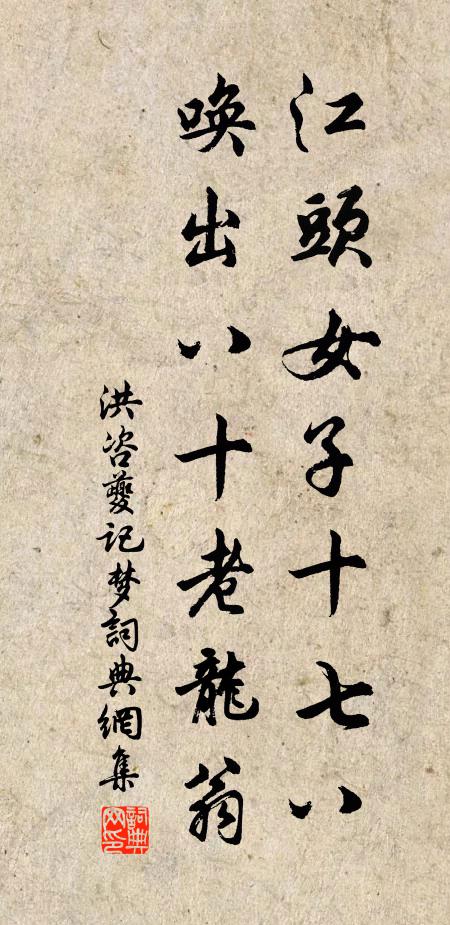 江頭女子十七八
喚出八十老龍翁
洪咨夔记梦詞典網集
詞典網印